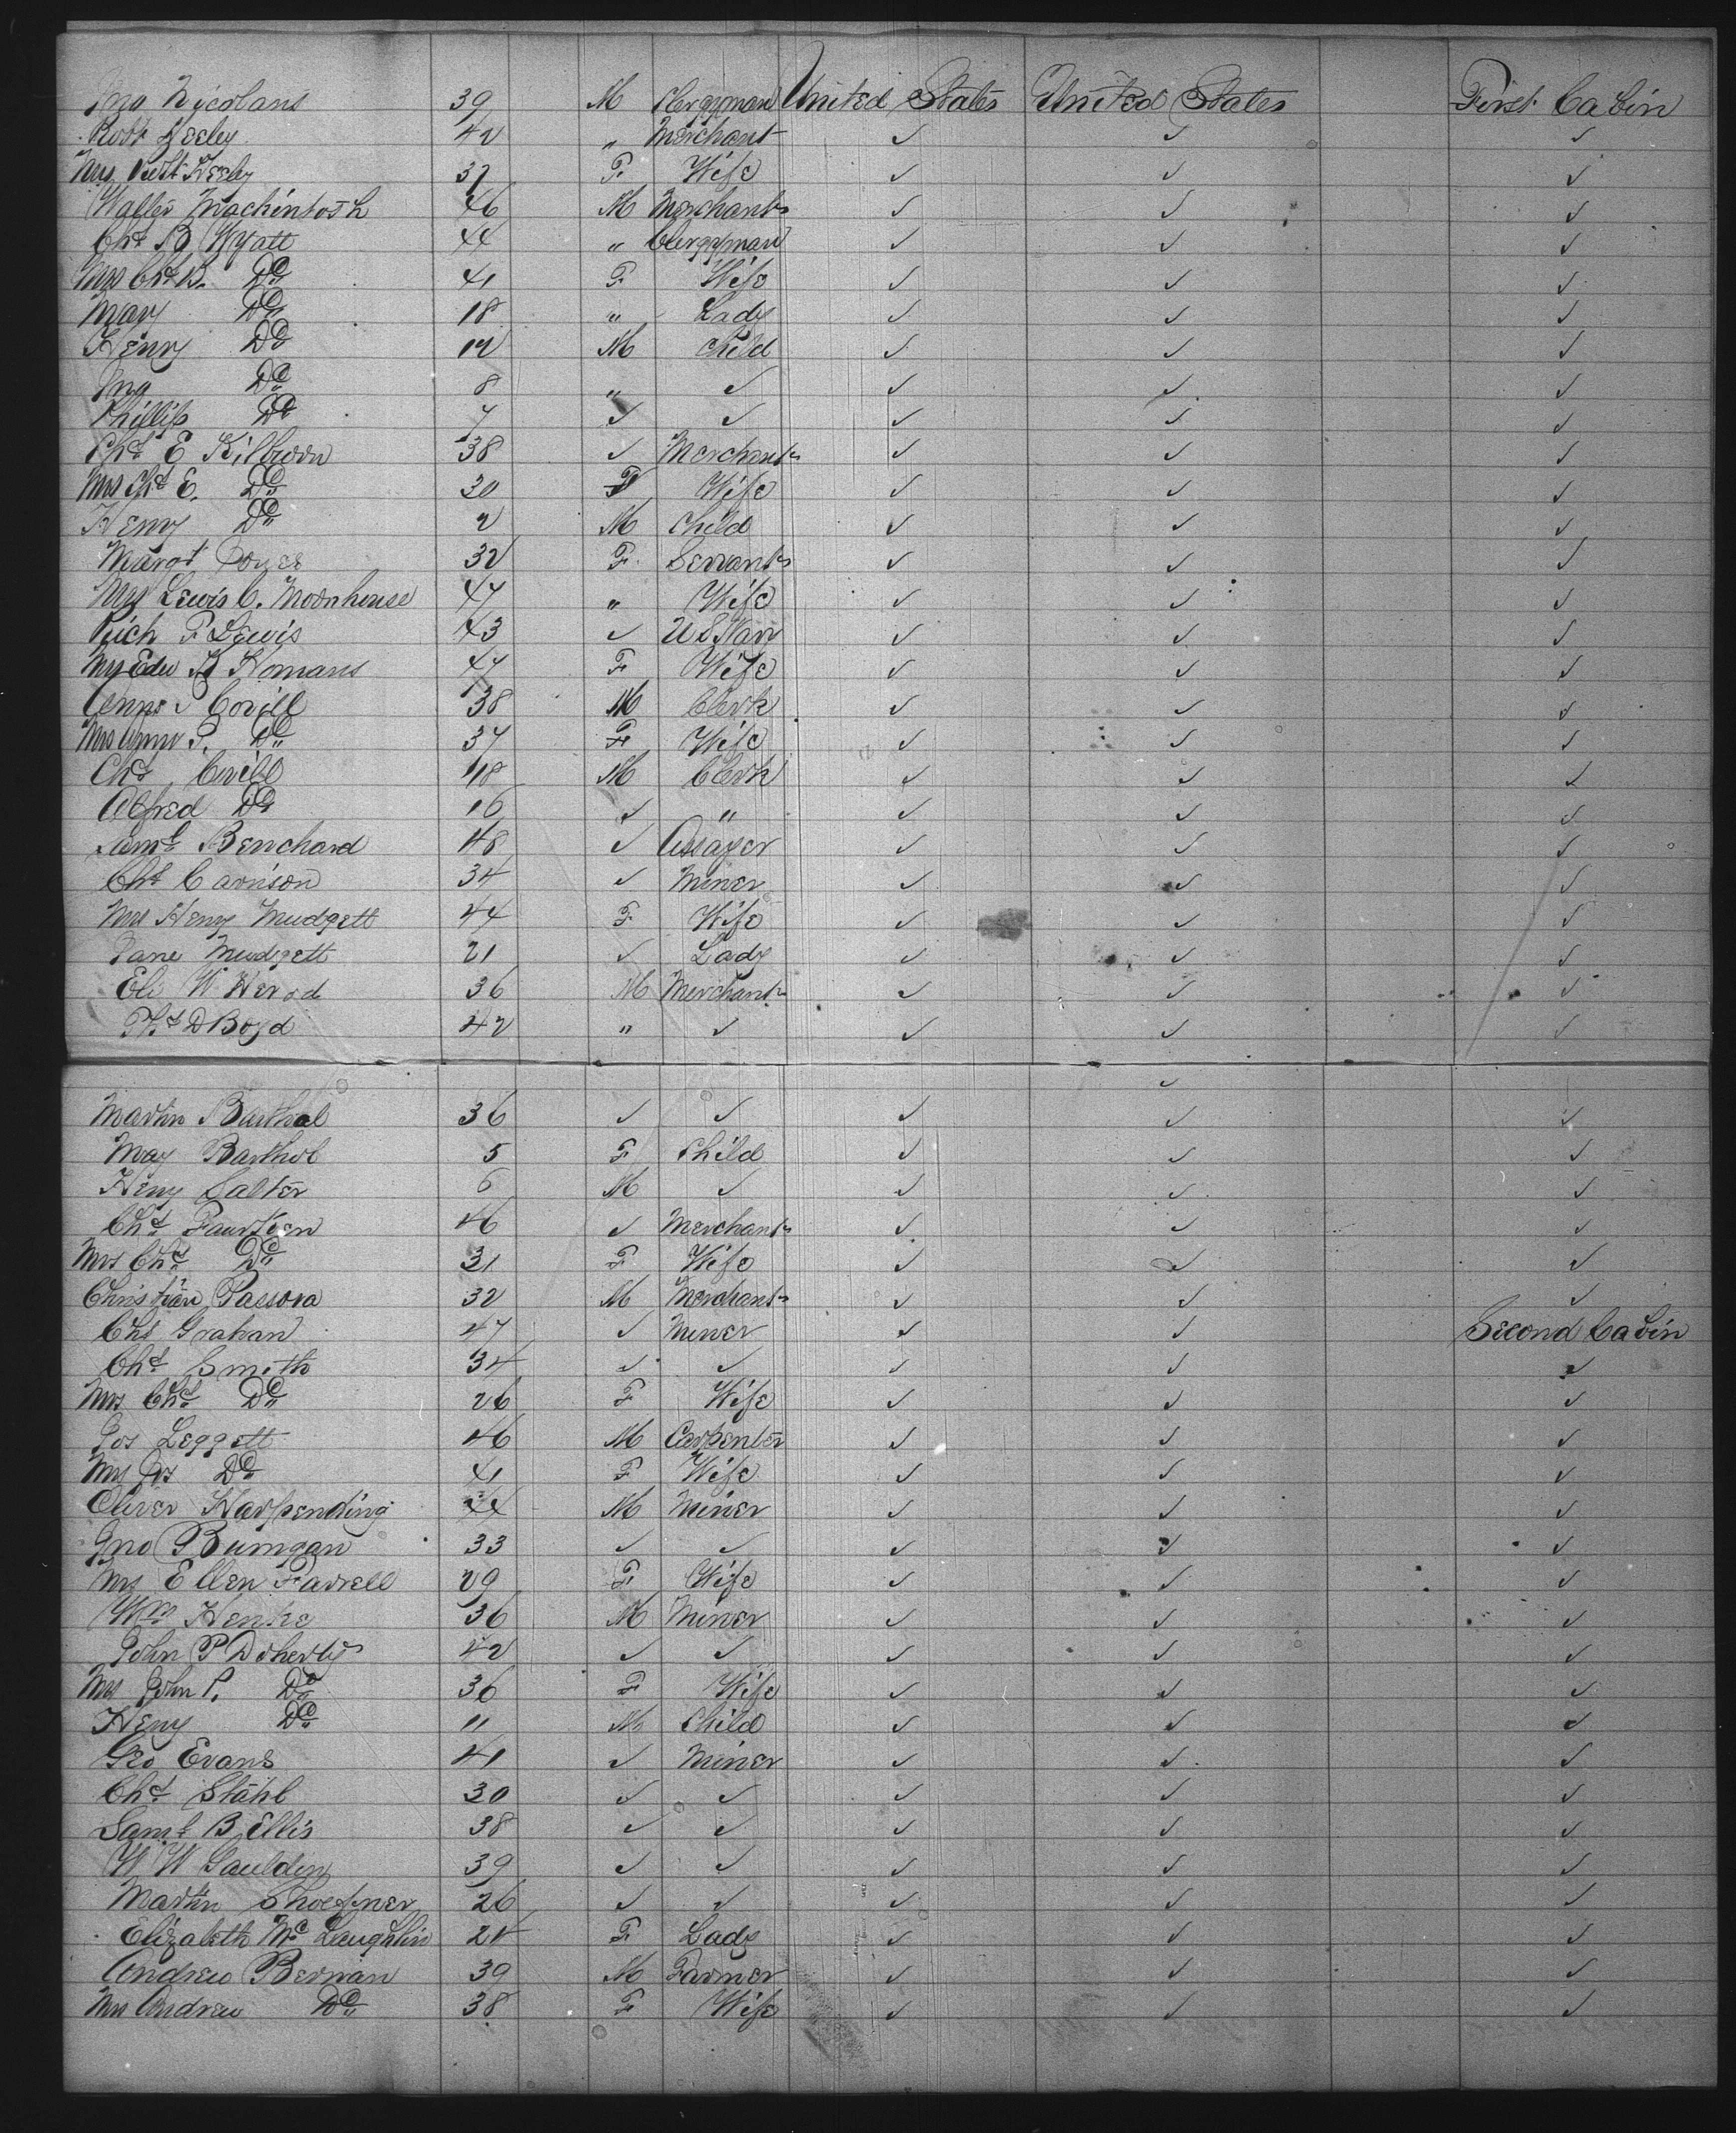 Jno Nicolans 39 M Clergyman United States United States First Cabin
Robt Keeley 42 " Merchant ✓ ✓ ✓
Mrs Robt Keeley 37 F Wife ✓ ✓ ✓
Walter Machintosh 46 M Merchant ✓ ✓ ✓
Chs B Wyatt 44 " Clergyman ✓ ✓ ✓
Mrs Chs B. Do 41 F Wife ✓ ✓ ✓
Mary Do 18 " Lady ✓ ✓ ✓
Henry Do 12 M Child ✓ ✓ ✓
Jno Do 8 " ✓ ✓ ✓ ✓
Phillip Do 7 ✓ ✓ ✓ ✓ ✓
Chs E Kilbworn 38 ✓ Merchant ✓ ✓ ✓
Mrs Chs E. Do 30 F Wife ✓ ✓ ✓
Henry Do 2 M Child ✓ ✓ ✓
Margt 32 F Servant ✓ ✓ ✓
Mrs Lewis C. Moornhouse 47 " Wife ✓ ✓ ✓
Rich F Lewis 43 ✓ U S Navy ✓ ✓ ✓
Mrs Edw H Homans 47 F Wife ✓ ✓ ✓
Covill 38 M Clerk ✓ ✓ ✓
Mrs Do 37 F Wife ✓ ✓ ✓
Chs Covill 18 M Clerk ✓ ✓ ✓
Alfred Do 16 ✓ " ✓ ✓ ✓
Saml Benchard 48 ✓ Assayer ✓ ✓ ✓
Chs Carrison 34 ✓ Miner ✓ ✓ ✓
Mrs Henry Mudgett 44 F Wife ✓ ✓ ✓
Jane Mudgett 21 ✓ Lady ✓ ✓ ✓
Eli W Herod 36 M Merchant ✓ ✓ ✓
Chs D Boyd 42 " ✓ ✓ ✓ ✓
✓
Martin Barthol 36 ✓ ✓ ✓ ✓ ✓
May Barthol 5 F Child ✓ ✓ ✓
Heny Salter 6 M ✓ ✓ ✓ ✓
Chs 46 ✓ Merchant ✓ ✓ ✓
Mrs Chs Do 31 F Wife ✓ ✓ ✓
Christian Passova 32 M Merchant ✓ ✓ ✓
Chs Grahan 47 ✓ Miner ✓ ✓ Second Cabin
Chs Smith 34 ✓ ✓ ✓ ✓ ✓
Mrs Chs Do 26 F Wife ✓ ✓ ✓
Jos Leggett 46 M Carpenter ✓ ✓ ✓
Mrs Jos Do 41 F Wife ✓ ✓ ✓
Oliver Harpending 44 M Miner ✓ ✓ ✓
Jno Bumgan 33 ✓ ✓ ✓ ✓ ✓
Mrs Ellen Farrell 29 F Wife ✓ ✓ ✓
Wm Henke 36 M Miner ✓ ✓ ✓
John P Doherty 42 ✓ ✓ ✓ ✓ ✓
Mrs John P. Do 36 F Wife ✓ ✓ ✓
Heny Do 11 M Child ✓ ✓ ✓
Geo Evans 41 ✓ Miner ✓ ✓ ✓
Chs Stahl 30 ✓ ✓ ✓ ✓ ✓
Saml B Ellis 38 ✓ ✓ ✓ ✓ ✓
W W Gaulden 39 ✓ ✓ ✓ ✓ ✓
Martin 26 ✓ ✓ ✓ ✓ ✓
Elizabeth Mc Laughlin 24 F Lady ✓ ✓ ✓
Andrew Bernan 39 M Farmer ✓ ✓ ✓
Mrs Andrew Do 38 F Wife ✓ ✓ ✓